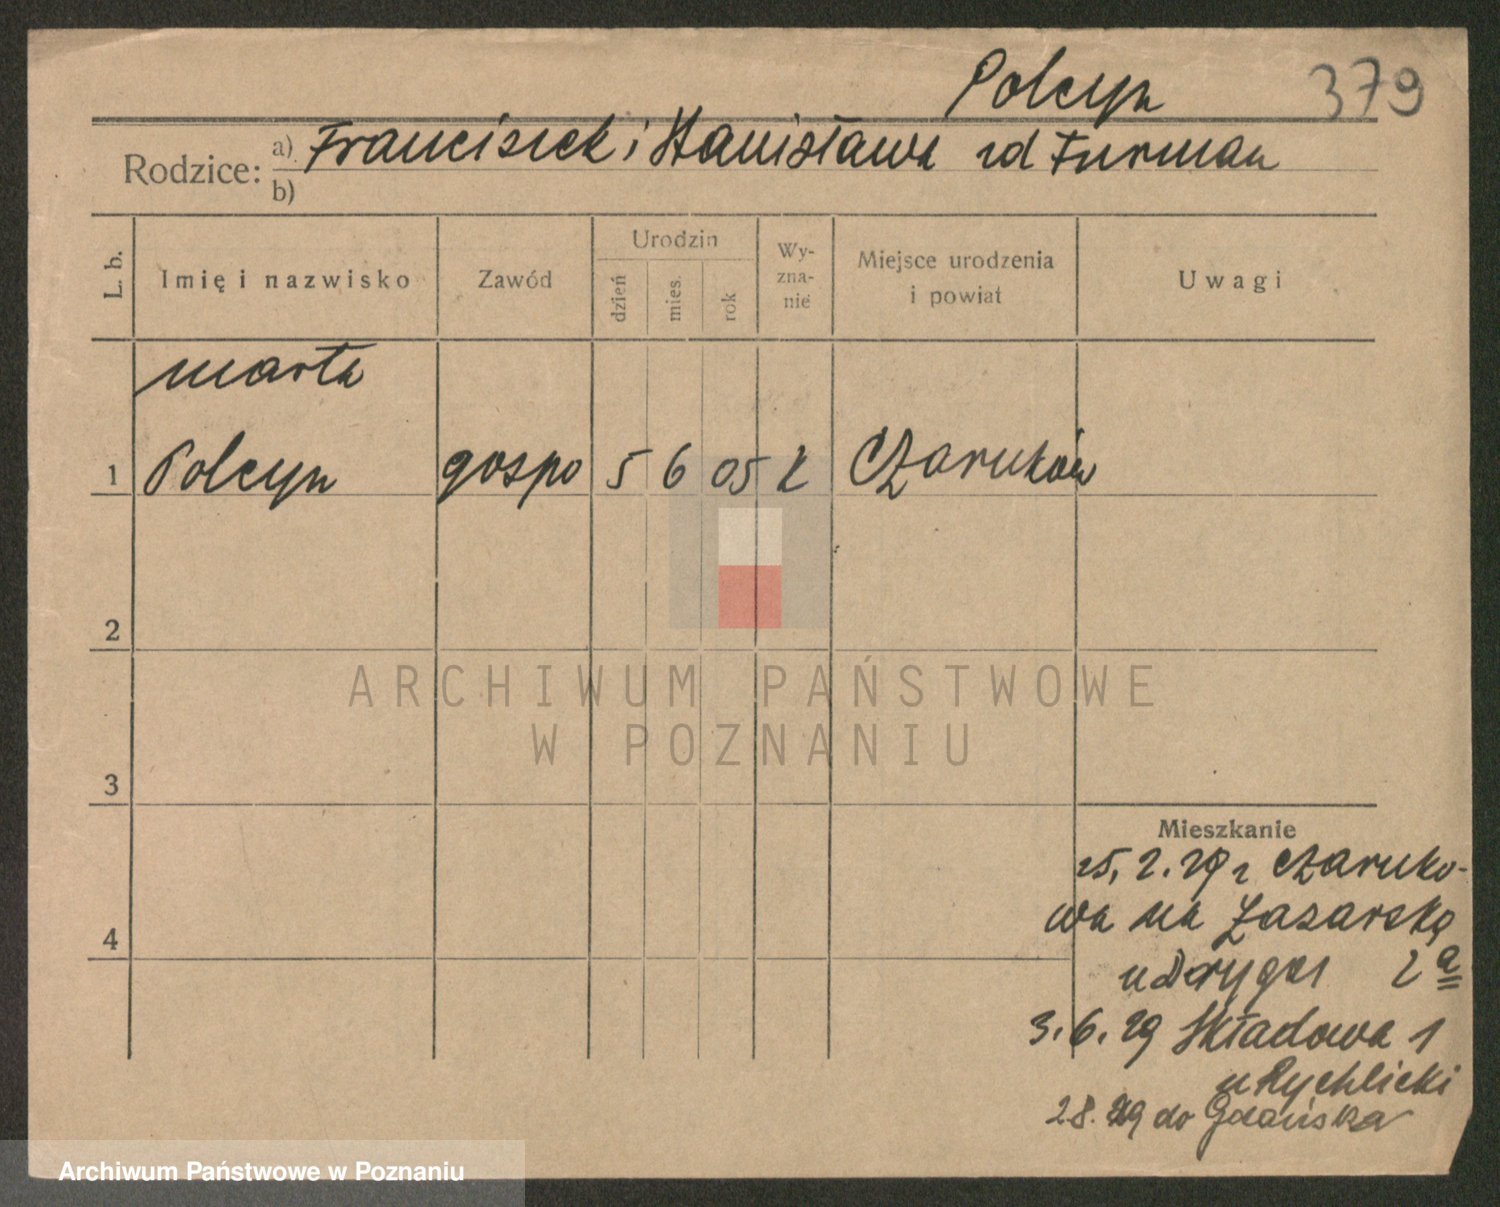 Polcyn 379
Rodzice: a) Franciszek i Stanisława zd Furman
b)
L. b. Imię i nazwisko Zawód Urodzin dzień mies. rok Wy-zna-nie Miejsce urodzenia i powiat Uwagi
Marta
1 Polcyn gospo 5 6 05 k Czarnków
2
ARCHIWUM PAŃSTWOWE
W POZNANIU
3
Mieszkanie
25, 2. 29 z Czarnko-
wa na Łazarską
4
u 2 a
3. 6. 29 Składowa 1
u Rychlicki
28. 29 do Gdańska
Archiwum Państwowe w Poznaniu